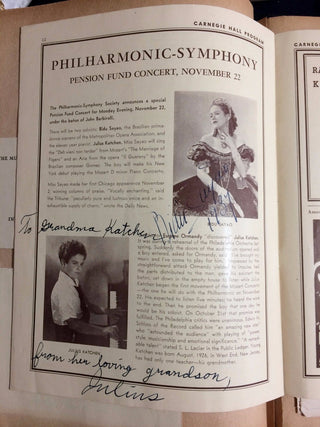 12
CARNEGIE HALL PROGRAM
PHILHARMONIC-SYMPHONY
PENSION FUND CONCERT, NOVEMBER 22
The Philharmonic-Symphony Society announces a special
Pension Fund Concert for Monday Evening, November 22,
under the baton of John Barbirolli.
There will be two soloists: Bidu Sayao, the Brazilian prima-
donna soprano of the Metropolitan Opera Association, and
the eleven year pianist, Julius Katchen. Miss Sayao will sing
the "Deh vieni non tardar" from Mozart's "The Marriage of
Figaro" and an Aria from the opera "Il Guarany" by the
Brazilian composer Gomes. The boy will make his New
York debut playing the Mozart D minor Piano Concerto.
Miss Sayao made her first Chicago appearance on November
2, winning columns of praise. "Vocally and
the Tribune. "peculiarly pure and lustrous voice and an in-
exhaustible equity of charm," wrote the Daily News.
BIDU SAYAO
To Grandma Katchen
Eugene Ormandy "discovered" Julius Katchen.
It was during a rehearsal of the Philadelphia Orchestra last
spring. Suddenly the doors of the
a boy entered, asked for Ormandy, said "I've brought my
music and I've come to play for him." Impressed by the
straightforward attack Ormandy yielded to impulse, had
the parts distributed to the men, gave his assistant the
baton, sat down in the empty house to listen while Julius
Katchen began the first movement of the Mozart Concerto
—the one he will do with the Philharmonic on November
22. He expected to listen five minutes; he heard the work
to the end. Then he promised the boy that one day he
would be his soloist. On October 21st that promise was
fulfilled. The Philadelphia critics were unanimous. Edwin H.
Schloss of the Record called him "an amazing new star"
who "astounded the audience" with playing of "power,
style, musicianship and emotional significance." "A remark-
able talent" stated S. L. Laciar in the Public Ledger. Young
Katchen was born August, 1926, in West End, New Jersey.
He has had only one teacher—his grandmother.
JULIUS KATCHEN
from her loving grandson,
Julius
CARNEGIE HALL